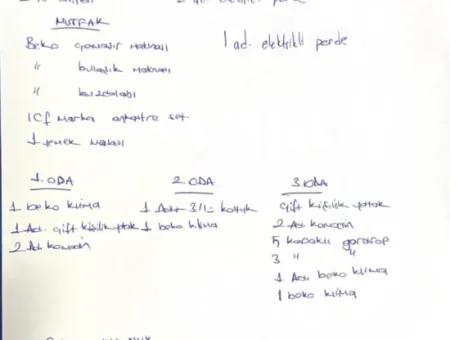 MUTFAK
Beko çamaşır makinası
" bulaşık makinası
" buzdolabı
1 ad. elektrikli perde
ICF marka set.
1 yemek masası
1. ODA
1 beko klima
1 Ad. çift kişilik yatak
2 Ad. komodin
2. ODA
1 Adet 3/1= koltuk
1 beko klima
3. ODA
çift kişilik yatak
2 Ad. komodin
5 kapaklı gardrop
3 " "
1 Ad. beko klima
1 beko klima